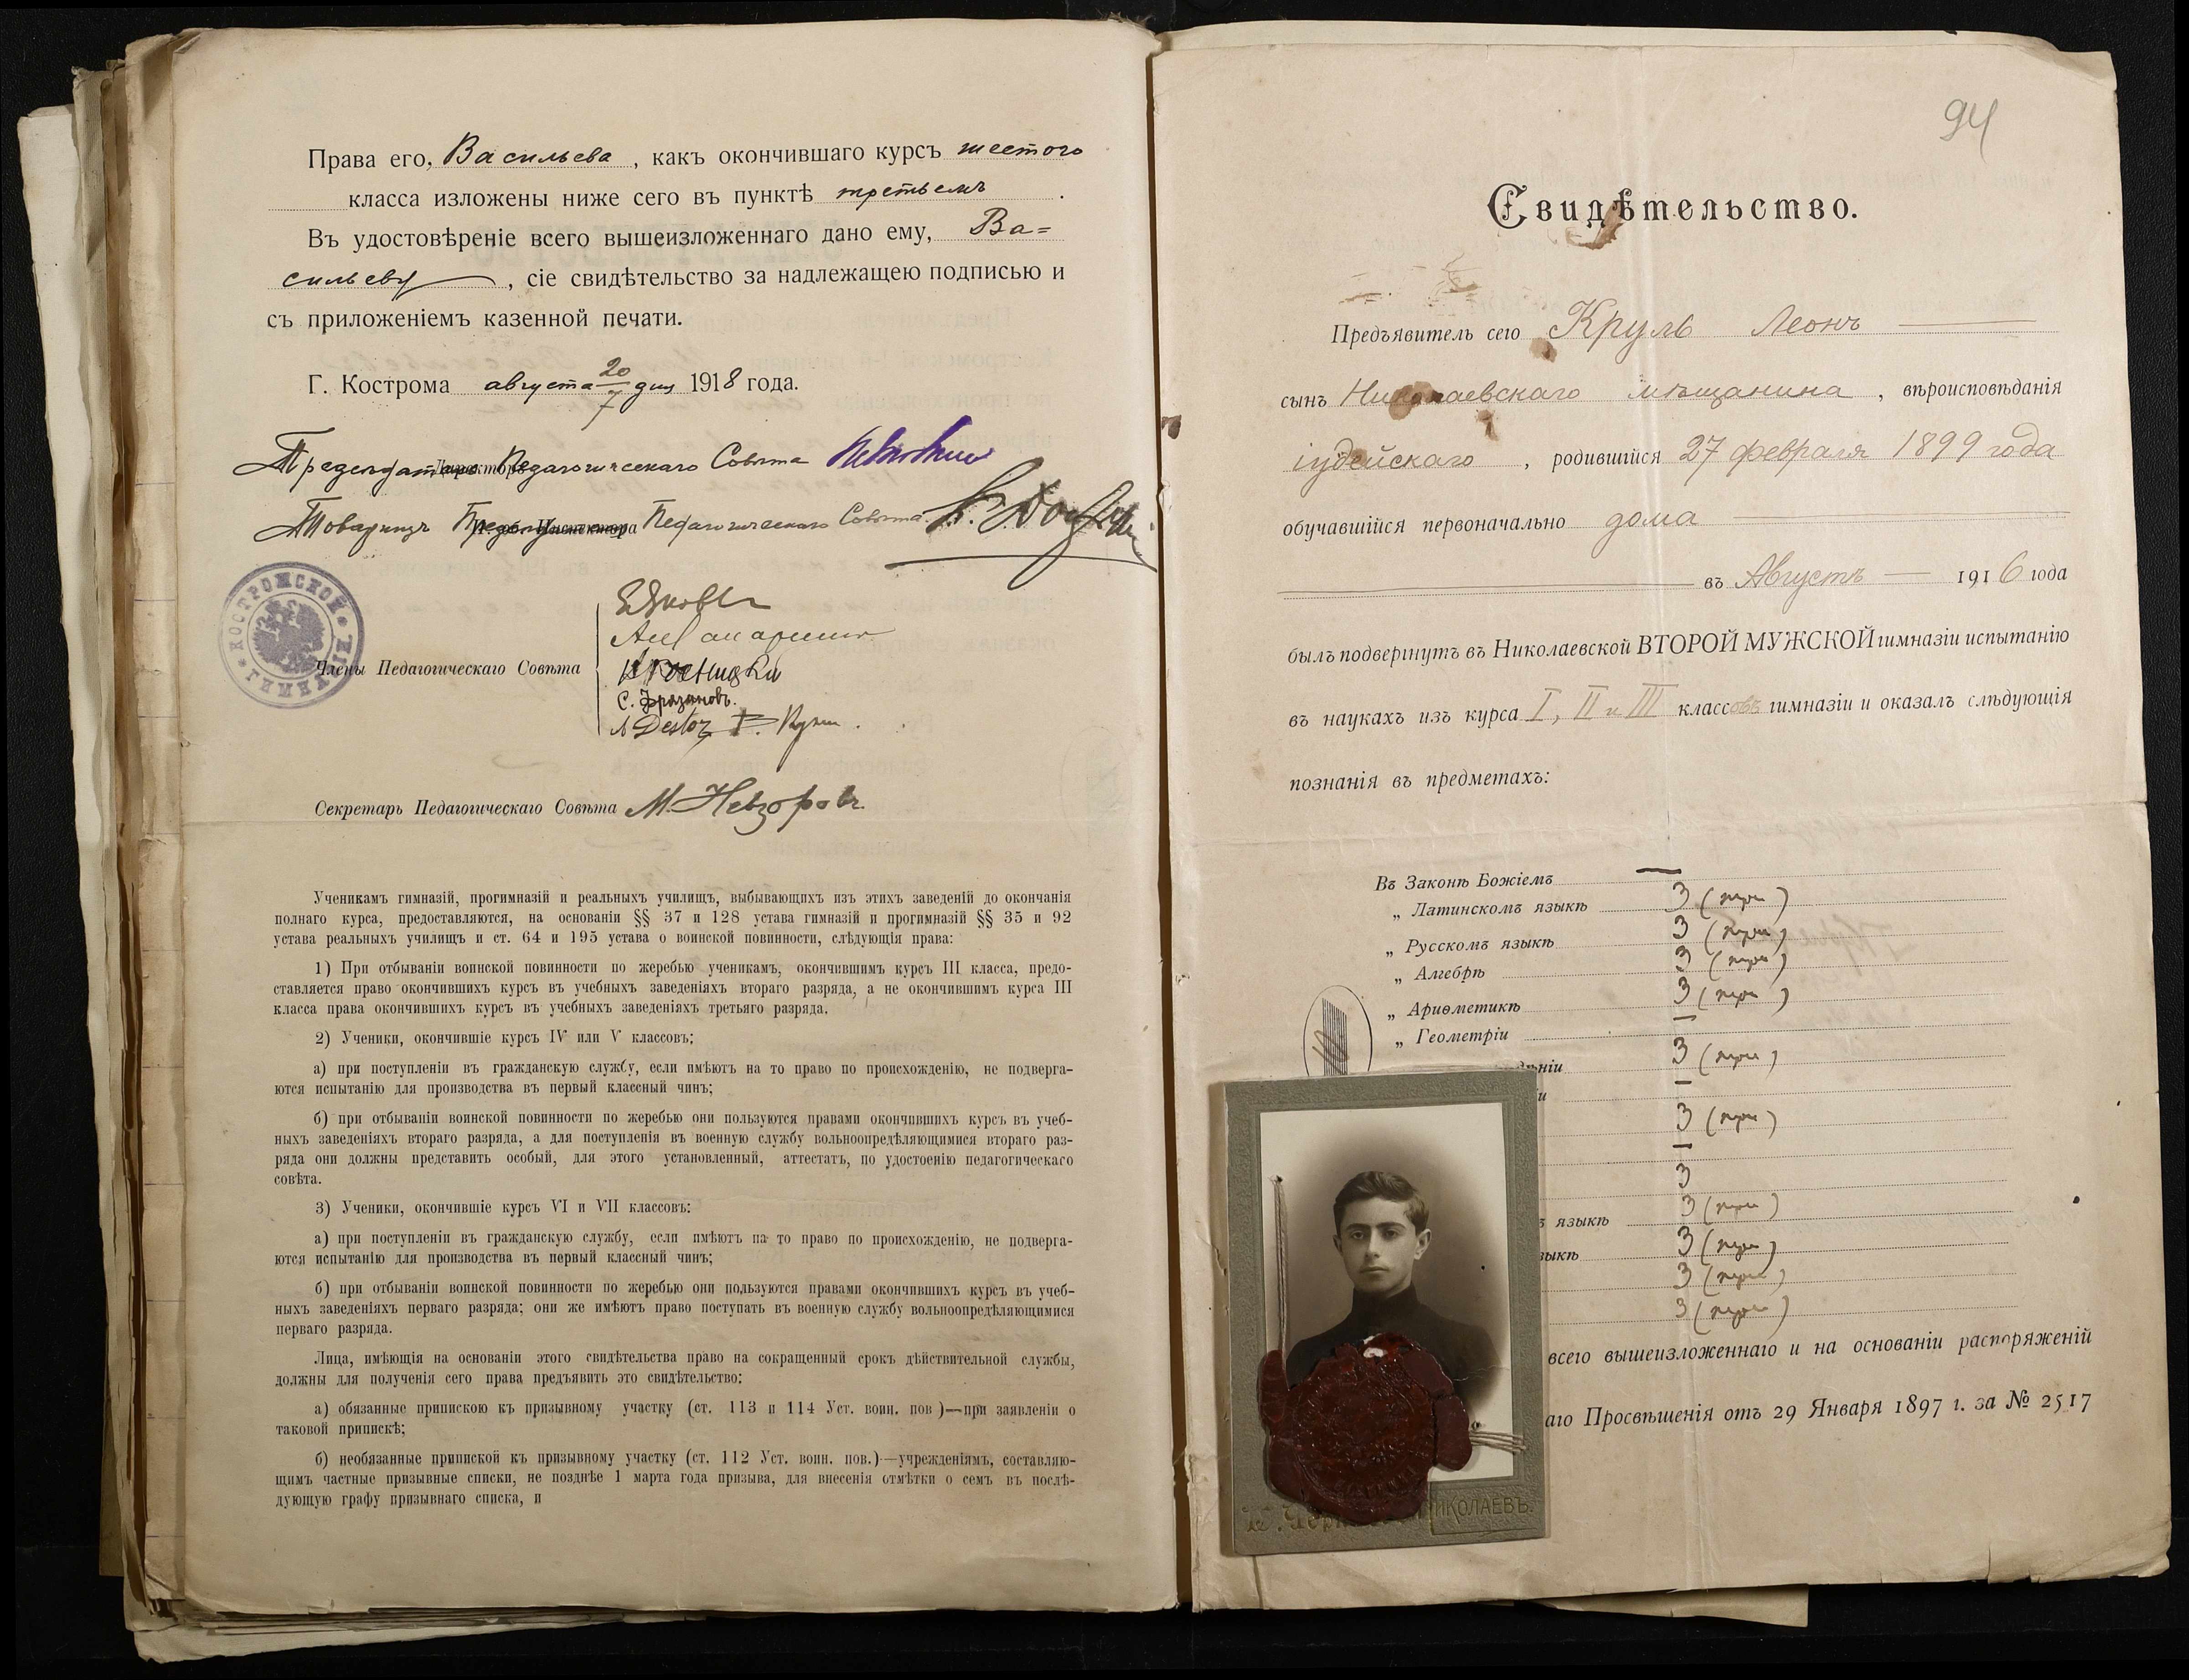 Права его, Васильева, какъ окончившаго курсъ шестого
класса изложены ниже сего въ пунктѣ третьемъ.
Въ удостовѣреніе всего вышеизложеннаго дано ему, Ва=
сильеву, сіе свидѣтельство за надлежащею подписью и
съ приложеніемъ казенной печати.
Г. Кострома августа 20/7 дня 1918 года.
Председатель Директоръ Педагогическаго Совѣта
Товарищъ Педагогическаго Совѣта
КОСТРОМСКОЙ ГИМНАЗІИ
Члены Педагогическаго Совѣта
С. Фрязиновъ.
Секретарь Педагогическаго Совѣта М. Невзоровъ.
Ученикамъ гимназій, прогимназій и реальныхъ училищъ, выбывающихъ изъ этихъ заведеній до окончанія
полнаго курса, предоставляются, на основаніи §§ 37 и 128 устава гимназій и прогимназій §§ 35 и 92
устава реальныхъ училищъ и ст. 64 и 195 устава о воинской повинности, слѣдующія права:
1) При отбываніи воинской повинности по жеребью ученикамъ, окончившимъ курсъ III класса, предо-
ставляется право окончившихъ курсъ въ учебныхъ заведеніяхъ втораго разряда, а не окончившимъ курса III
класса права окончившихъ курсъ въ учебныхъ заведеніяхъ третьяго разряда.
2) Ученики, окончившіе курсъ IV или V классовъ:
а) при поступленіи въ гражданскую службу, если имѣютъ на то право по происхожденію, не подверга-
ются испытанію для производства въ первый классный чинъ;
б) при отбываніи воинской повинности по жеребью они пользуются правами окончившихъ курсъ въ учеб-
ныхъ заведеніяхъ втораго разряда, а для поступленія въ военную службу вольноопредѣляющимися втораго раз-
ряда они должны представить особый, для этого установленный, аттестатъ, по удостоенію педагогическаго
совѣта.
3) Ученики, окончившіе курсъ VI и VII классовъ:
а) при поступленіи въ гражданскую службу, если имѣютъ на то право по происхожденію, не подверга-
ются испытанію для производства въ первый классный чинъ;
б) при отбываніи воинской повинности по жеребью они пользуются правами окончившихъ курсъ въ учеб-
ныхъ заведеніяхъ перваго разряда; они же имѣютъ право поступать въ военную службу вольноопредѣляющимися
перваго разряда.
Лица, имѣющія на основаніи этого свидѣтельства право на сокращенный срокъ дѣйствительной службы,
должны для полученія сего права предъявить это свидѣтельство:
а) обязанные припискою къ призывному участку (ст. 113 и 114 Уст. воин. пов )—при заявленіи о
таковой припискѣ;
б) необязанные припиской къ призывному участку (ст. 112 Уст. воин. пов.)—учрежденіямъ, составляю-
щимъ частные призывные списки, не позднѣе 1 марта года призыва, для внесенія отмѣтки о семъ въ послѣ-
дующую графу призывнаго списка, и
94
Свидѣтельство.
Предъявитель сего Круль Леонъ
сынъ Николаевскаго мѣщанина, вѣроисповѣданія
іудейскаго, родившійся 27 февраля 1899 года
обучавшійся первоначально дома
въ Августѣ 1916 года
былъ подвергнутъ въ Николаевской ВТОРОЙ МУЖСКОЙ гимназіи испытанію
въ наукахъ изъ курса I, II и III классовъ гимназіи и оказалъ слѣдующія
познанія въ предметахъ:
Въ Законѣ Божіемъ —
„ Латинскомъ языкѣ 3 (три)
„ Русскомъ языкѣ 3 (три)
„ Алгебрѣ 3 (три)
„ Ариѳметикѣ 3 (три)
„ Геометріи —
дѣніи 3 (три)
и —
3 (три)
—
3
ъ языкѣ 3 (три)
зыкѣ 3 (три)
3 (три)
3 (три)
всего вышеизложеннаго и на основаніи распоряженій
аго Просвѣщенія отъ 29 Января 1897 г. за № 2517
НИКОЛАЕВЪ.